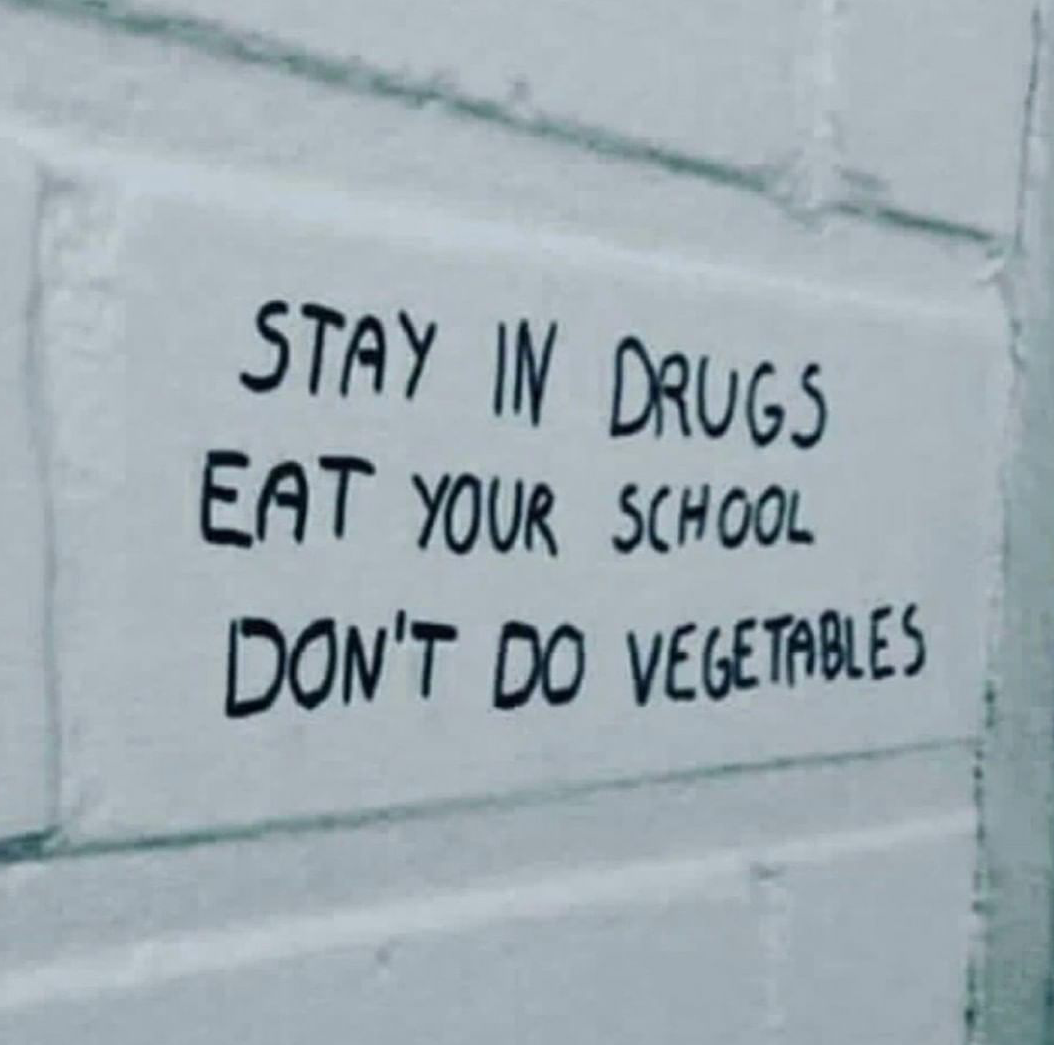 STAY IN DRUGS
EAT YOUR SCHOOL
DON'T DO VEGETABLES